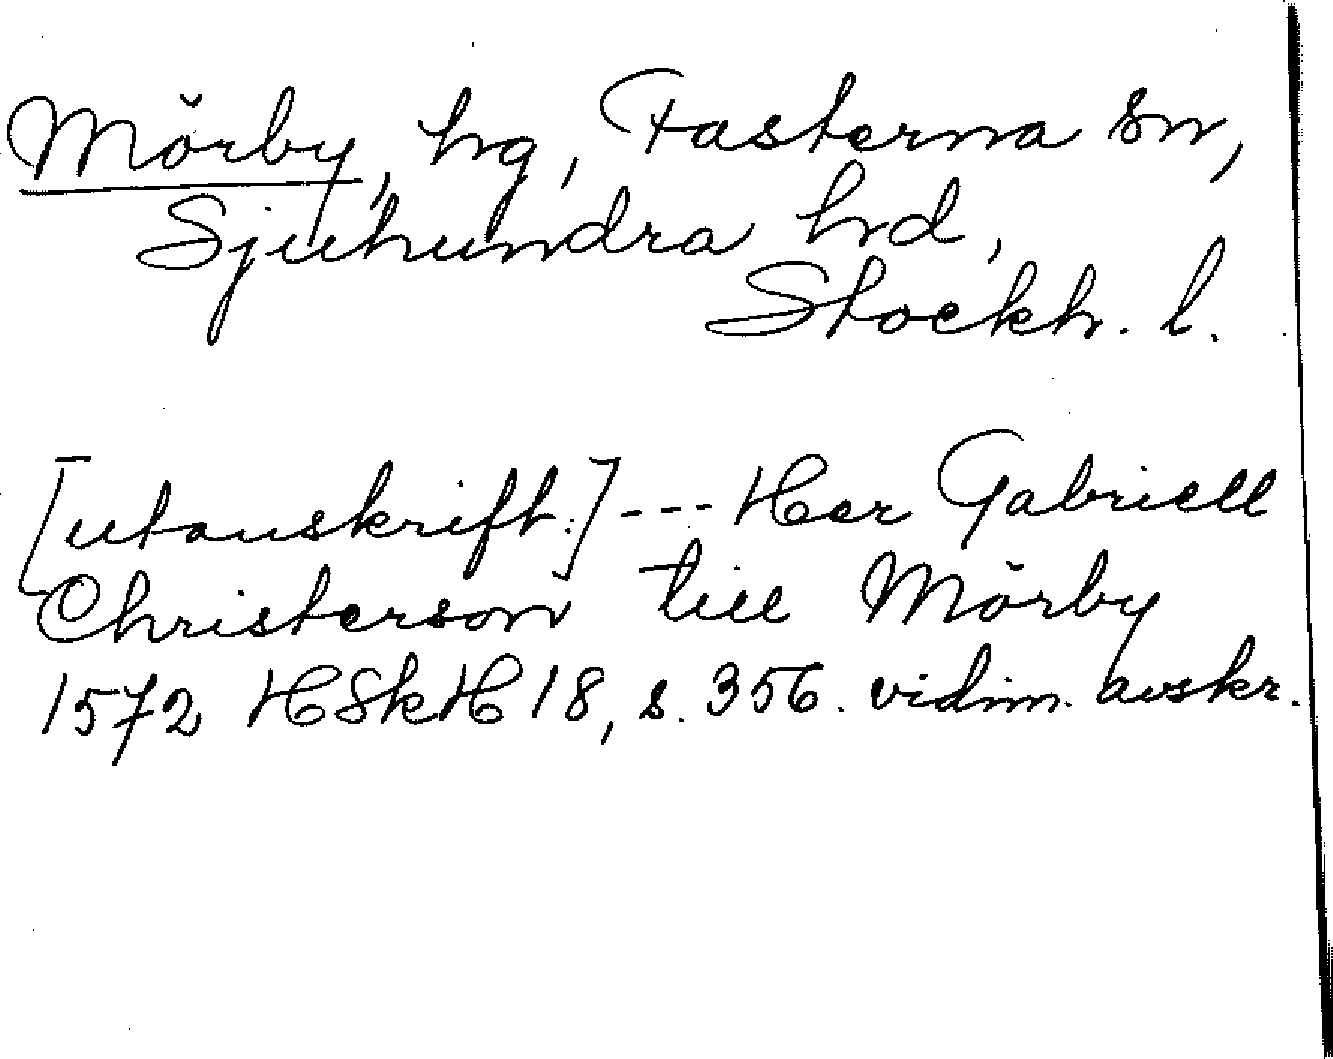 Mörby, hg, Fasterna sn,
Sjuhundra hd,
Stockh. l.
[utanskrift:] --- Her Gabriell
Christerson till Mörby
1572 HSkH 18, s. 356. vidim. avskr.